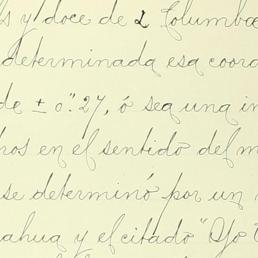 y doce de α Columbae
determinada esa coord
de ± 0".27, ó sea una in
en el sentido del m
se determinó por un
ahua y el citado "Ojo